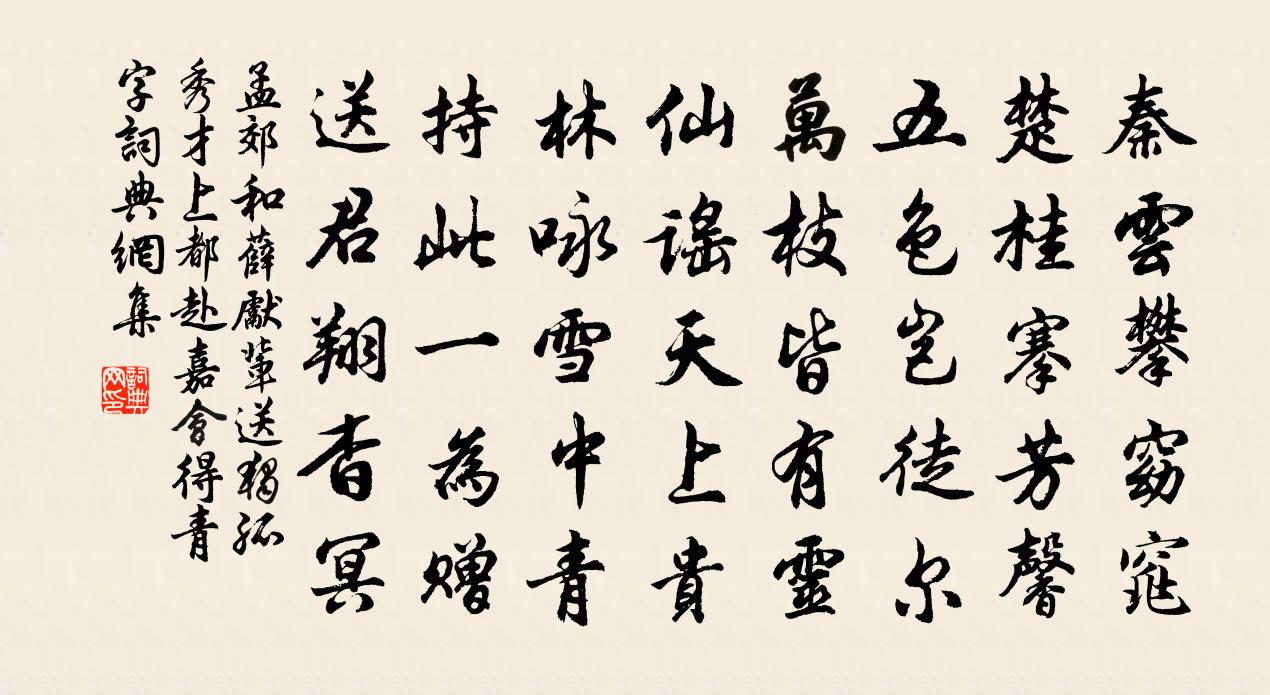 秦雲攀窈窕
楚桂搴芳馨
五色岂徒尔
萬枝皆有靈
仙謠天上貴
林咏雪中青
持此一為赠
送君翔杳冥
孟郊和薛獻輩送獨孤
秀才上都赴嘉會得青
字詞典網集
詞典网印